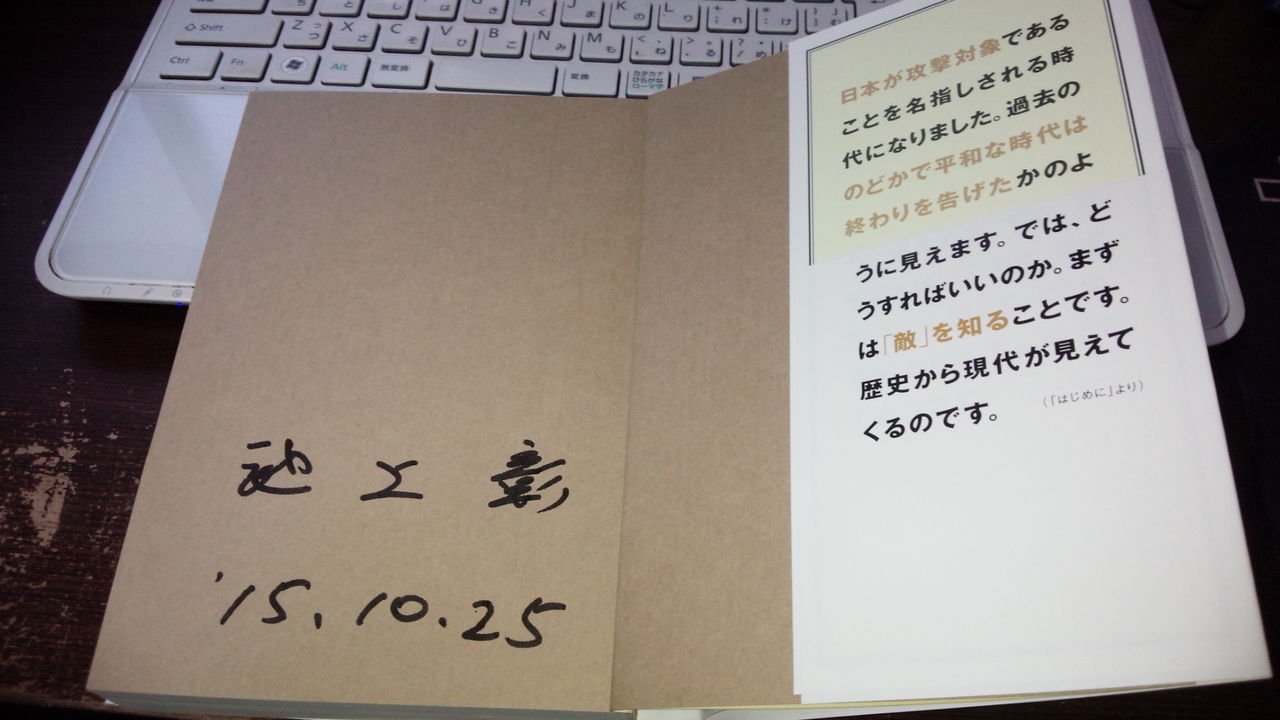 Shift
Z
つ
っ
X
さ
C
そ
V
ひ
B
こ
N
み
M
も
Ctrl
Fn
Alt
無変換
変換
カタカナ
ひらがな
ローマ字
池上彰
'15.10.25
日本が攻撃対象である
ことを名指しされる時
代になりました。過去の
のどかで平和な時代は
終わりを告げたかのよ
うに見えます。では、ど
うすればいいのか。まず
は「敵」を知ることです。
歴史から現代が見えて
くるのです。
(「はじめに」より)